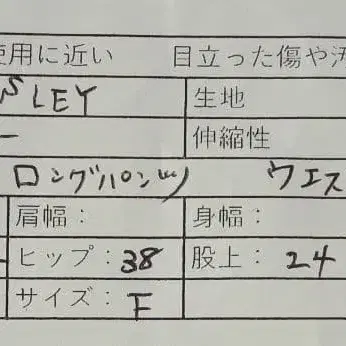 使用に近い 目立った傷や汚
SLEY 生地
ー 伸縮性
ロングパンツ ウエス
肩幅： 身幅：
ヒップ：38 股上：24
サイズ：F